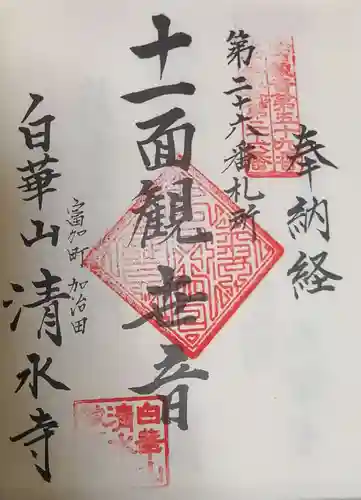 奉納経
第二十六番札所
十一面観世音
富加町 加治田
白華山 清水寺
白華山
清水